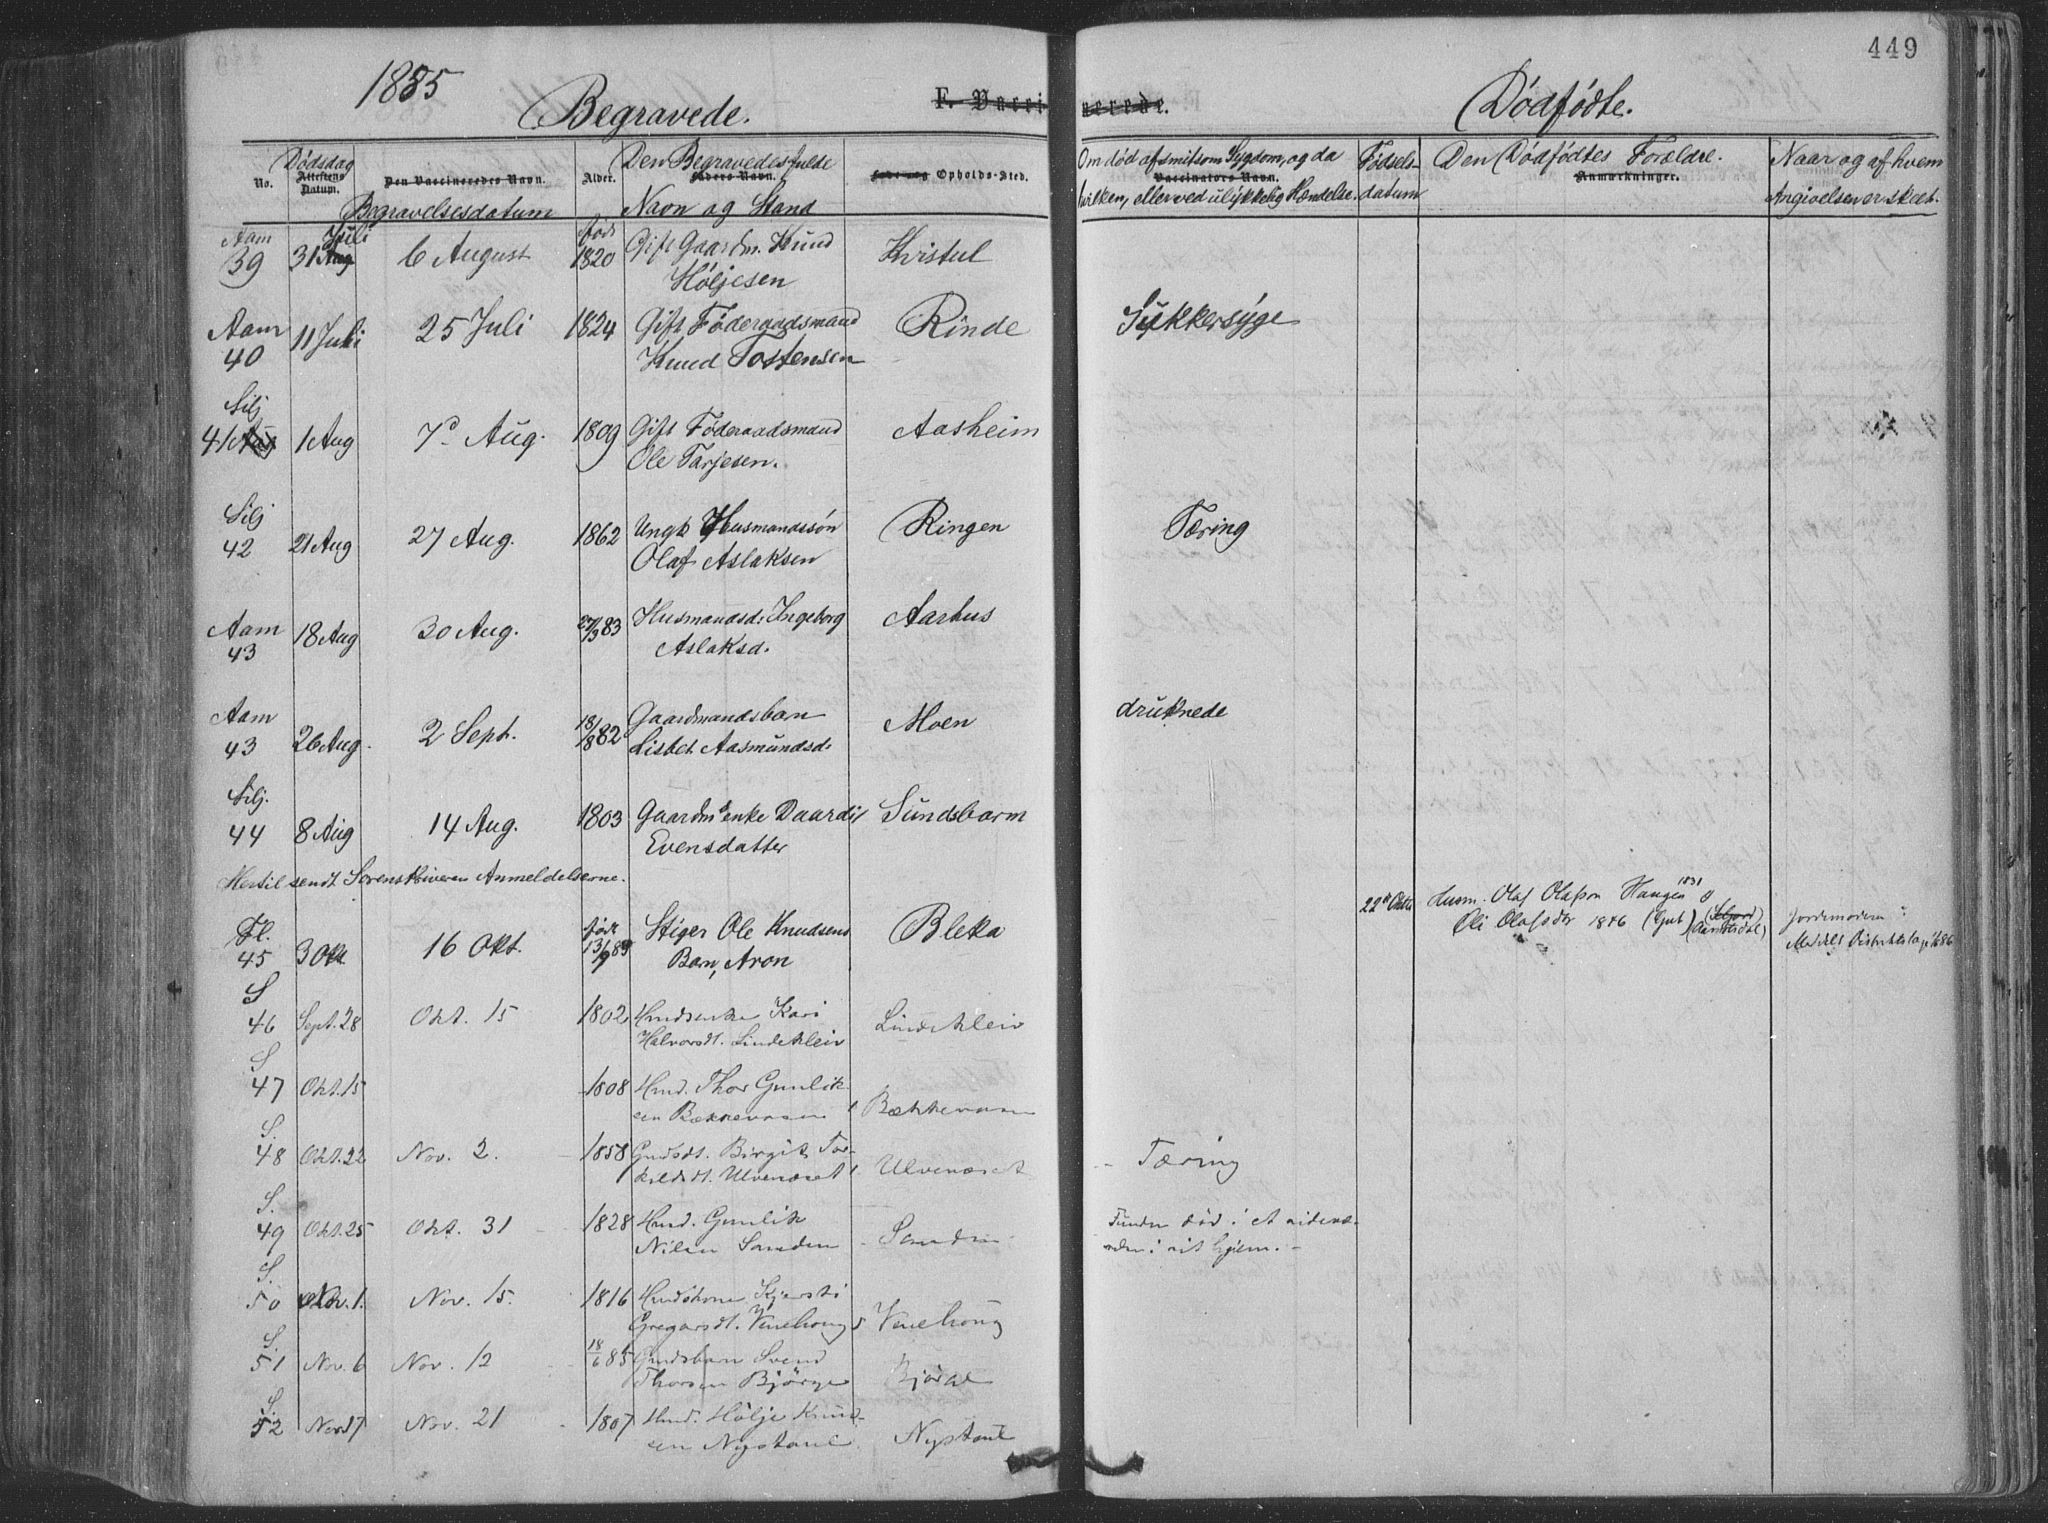 449
1885
Begravede.
F. Vaccinerede.
Dødfødte.
No.
Dødsdag
Attestens Datum.
Den Vaccineredes Navn.
Begravelsesdatum
Alder.
Den Begravedes fulde
Navn og Stand
Opholds-Sted.
Om død af smitsom Sygdom, og da
hvilken, eller ved ulykkelig Hændelse.
Vaccinators Navn.
Fødsels-
datum
Den Dødfødtes Forældre.
Anmærkninger.
Naar og af hvem
Angivelsen er skeet.
Aam 39 31 Juli Aug 6 August født 1820 Gift Gaardm. Knud
Høljesen Kvistul
Aam 40 11 Juli 25 Juli 1824 Gift Føderaadsmand Rinde Sukkersyge
Knud Tostensen
Silj 41 Aug 1 Aug 7d Aug. 1809 Gift Føderaadsmand Aasheim
Ole Tarjesen.
Silj 42 21 Aug 27 Aug. 1862 Ungk Husmandssøn Ringen Tæring
Olaf Aslaksen
Aam 43 18 Aug 30 Aug. 27/3 83 Husmandsd: Ingeborg Aarhus
Aslaksd.
Aam 43 26 Aug. 2 Sept. 18/8 82 Gaardmandsbarn Moen druknede
Lisbet Aasmundsd:
Silj. 44 8 Aug 14 Aug. 1803 Gaardms enke Daardi Sundsbarm
Evensdatter
Hertil sendt Sorenskriveren Anmeldelserne.
22de Oktbr Husm. Olaf Olafson Haugen 1831 og
Oli Olafsdtr 1846 (Gut) (Seljord) Jordemoderen
Fl. 45 3 Okt 16 Okt. født 13/9 85 Stiger Ole Knudsens Bleka
Barn, Aron
S 46 Sept. 28 Okt. 15 1802 Kari
Halvorsdt. Lindekleiv Lindekleiv
S 47 Okt. 15 1808 Thor Gunlik-
sen Bækkevasen Bækkevasen
S. 48 Okt. 22 Nov. 2. 1858 Birgit Tor-
kildsdt. Ulvenæset Ulvenæset Tæring
S. 49 Okt. 25 Okt. 31 1828 Gunlik
Nilsen Sanden Sanden Funden død i et
i sit Hjem.
S. 50 Nov. 1. Nov. 15. 1816 Kjersti
Gregarsdt. Vinehoug Vinehoug
S. 51 Nov. 6 Nov. 12 18/6 85 Svend
Thorsen Bjørge Bjørge
S. 52 Nov 17 Nov. 21 1807 Hölje Knud-
sen Nystaul Nystaul